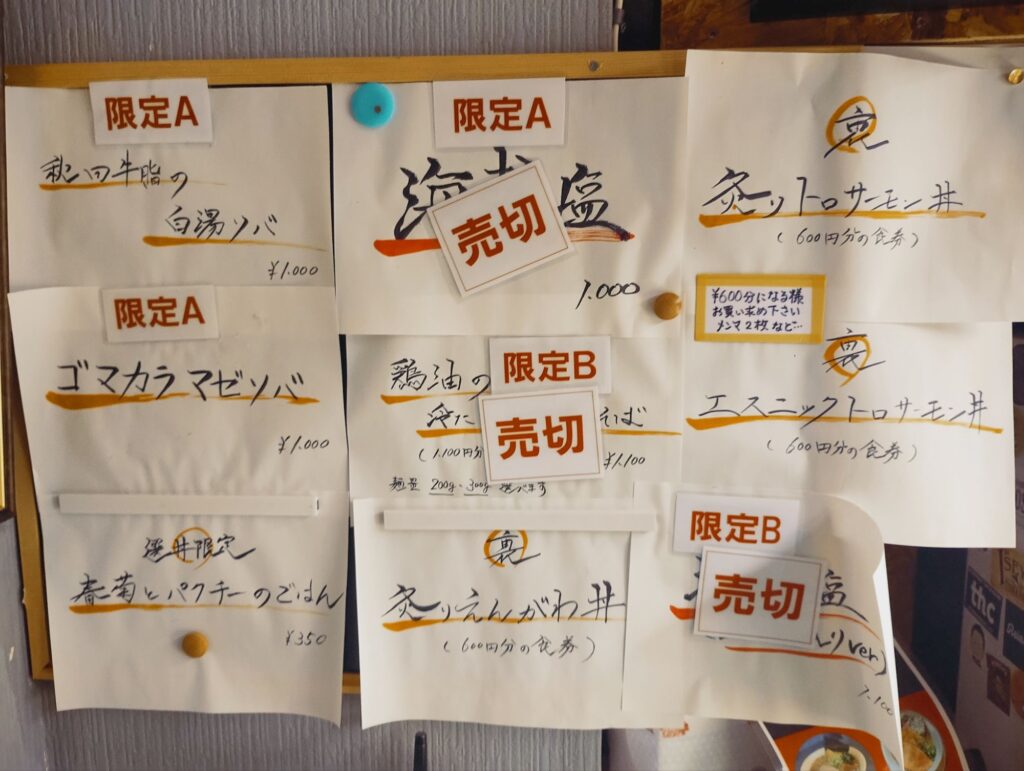 限定A
秋田牛脂の
白湯ソバ
¥1.000
限定A
海 塩
売切
1.000
裏
炙りトロサーモン丼
(600円分の食券)
限定A
ゴマカラマゼソバ
¥1.000
鶏油の
限定B
売切
えそば
(1.100円分
¥1.100
麺量 200g・300g 選べます
¥600分になる様
お買い求め下さい
メンマ2枚など…
裏
エスニックトロサーモン丼
(600円分の食券)
限定
春菊とパクチーのごはん
¥350
裏
炙りえんがわ丼
(600円分の食券)
限定B
売切
塩
りver)
1.100
thc